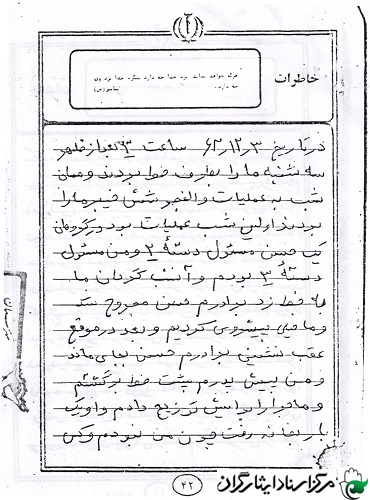 خاطرات
هرکه خواهد بداند نزد خدا چه دارد بنگرد خدا نزد وی
چه دارد. (پیامبر(ص))
در تاریخ ۳ر۱۲ر۶۲ ساعت ۳ بعد از ظهر
سه شنبه ما را بطرف خط بردند و همان
شب به عملیات والفجر شش خیبر ما را
بردند اولین شب عملیات بود در گروهان
یک حسن مسئول دسته ۲ و من مسئول
دسته ۳ بودم و آنشب گردان ما
به خط زد برادرم حسن مجروح شد
و ما خیلی پیشروی کردیم و بعد در موقع
عقب نشینی برادرم حسن بجای ماند
و من پیش پدرم پشت خط برگشتم
و ماجرا را برایش توزیع دادم و او یک
بار بخانه رفت چون من نبودم و کسی
۴۲
مرکز اسناد ایثارگران